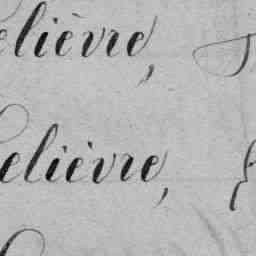 elièvre,
elièvre,